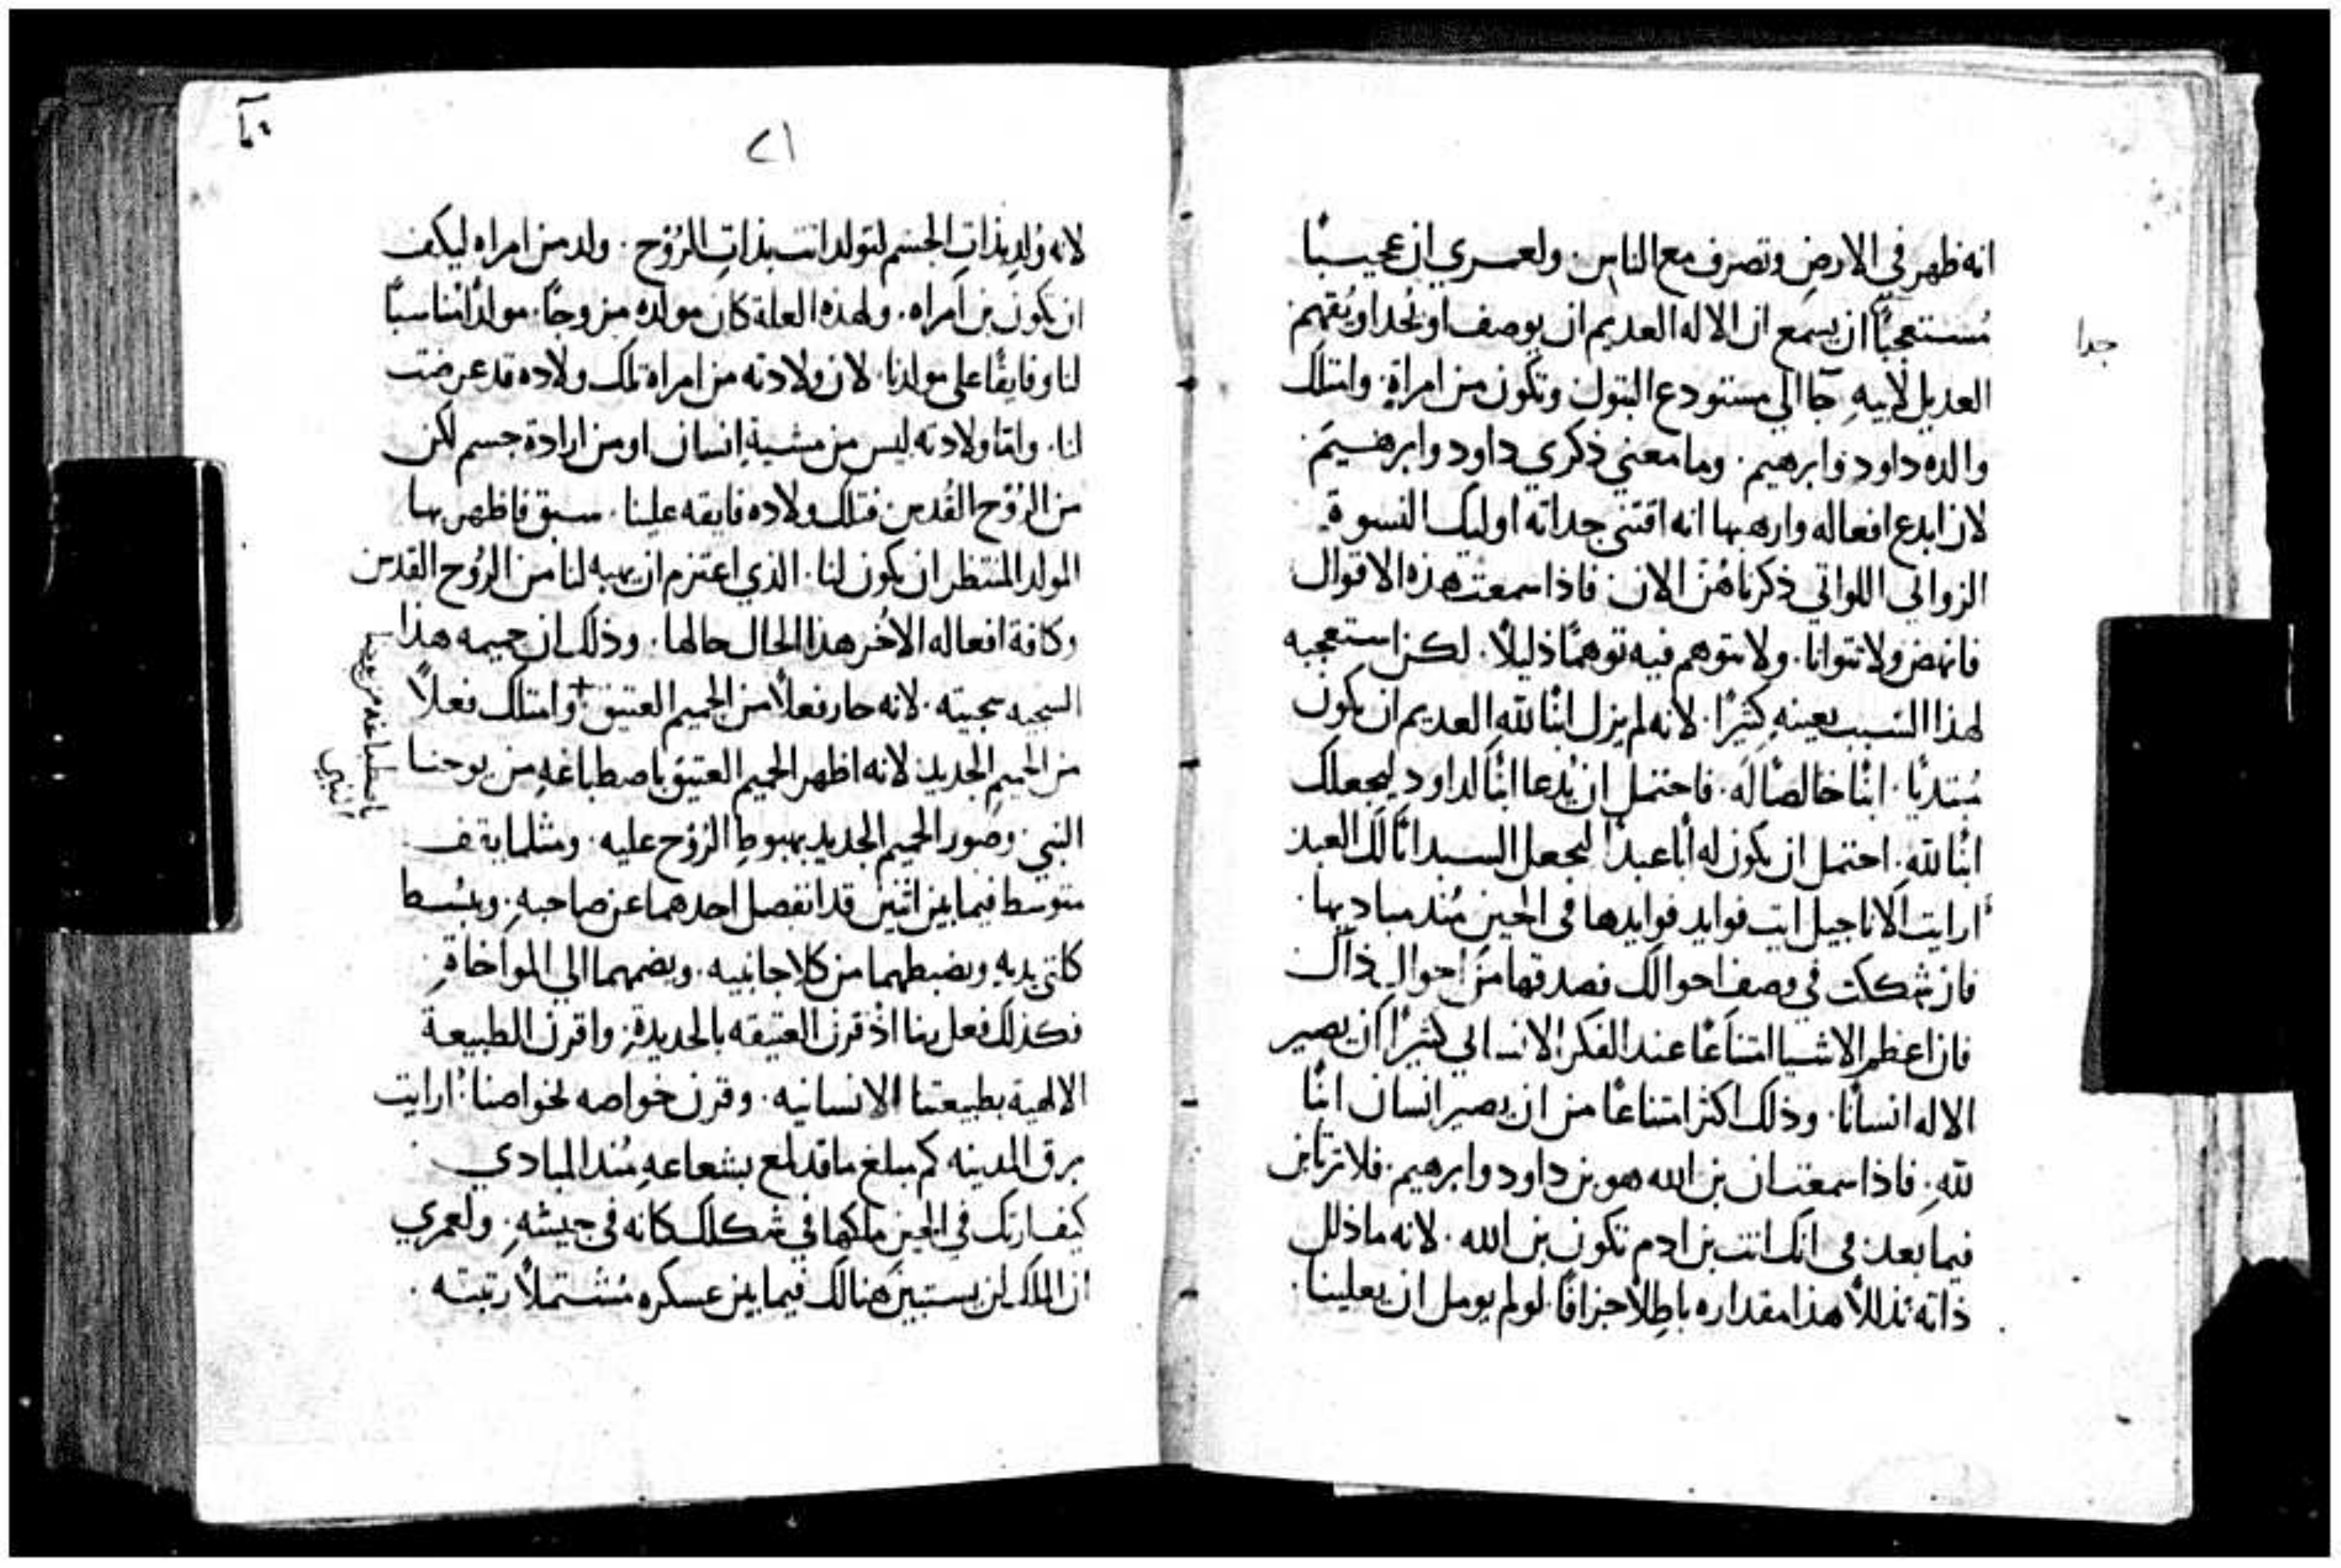 انه ظهر في الارضِ وتصرف مع الناس. ولعمري ان عجيبًا
مُستعجبًا ان يسمع ان الاله العديم ان يوصف او يُحد او يُفهم
جدا
العديل لابيهِ جآ الي مستودع البتول وتكون من امراةٍ. وامتلك
والده داود وابرهيم. وما معني ذكري داود وابرهيم
لان ابدع افعاله وارهبها انه اقتني جداته اوليك النسوة
الزواني اللواتي ذكرناهُن الان. فاذا سمعت هذه الاقوال
فانهض ولا تتوانا. ولا تتوهم فيه توهمًا ذليلًا. لكن استعجبه
لهذا السبب بعينهِ كثيرًا. لانه لم يزل ابنًا للهِ العديم ان يكون
مُبتديًا. ابنًا خالصًا له. فاحتمل ان يُدعا ابنًا لداود ليجعلك
ابنًا للهِ. احتمل ان يكون له ابًا عبدًا ليجعل السيد ابًا لك العبد
ارايت الاناجيل ايت فوايد فوايدها في الحين مُند مباديها.
فان شككت في وصف احوالك فصدقها من احوال ذاك
فان اعظم الاشيا امتناعًا عند الفكر الانساني كثيرًا ان يصير
الاله انسانًا. وذلك اكثر امتناعًا من ان يصير انسان ابنًا
للهِ. فاذا سمعت ان بن الله هو بن داود وابرهيم. فلا ترتابن
فيما بعد في انك انت بن ادم تكون بن الله. لانه ما ذلل
ذاته تذللًا هذا مقداره باطِلًا جزافًا. لو لم يومل ان يعلينا.
٢١
لانه وُلد بذاتِ الجسم لتولد انت بذاتِ الرُوح. ولد من امراه ليكف
ان تكون بن امراه. ولهذه العلة كان مولده مزوجًا. مولدًا مناسبًا
لنا وفايقًا على مولدنا. لان ولادته من امراه تلك ولاده قد عرضت
لنا. وامّا ولادته ليس من مشيةِ انسان او من ارادة جسم لكن
من الرُوح القُدس فتلك ولاده فايقه علينا. سبق فاظهر بها
المولد المنتظر ان يكون لنا. الذي اعتزم ان يهبه لنا من الرُوح القدس
وكافة افعاله الاُخر هذا الحال حالها. وذلك ان حميمه هذا
السجيه سجيته. لانه حاز فعلًا من الحميم العتيق + وامتلك فعلاً
من الحميمِ الجديد لانه اظهر الحميم العتيق باصطباغهِ من يوحنا
باصطباغه من يوحنا
النبي
النبي وصور الحميم الجديد بهبوطِ الرُوح عليه. ومثلما يقف
متوسط فيما بين اثنين قد انفصل احدهما عن صاحبهِ. ويبسُط
كلتي يديهِ ويضبطهما من كلا جانبيه. ويضمهما الي المواخاةِ
فكذلك فعل بنا اذ قرن العتيقه بالحديدةِ. واقرن الطبيعة
الالهية بطبيعتنا الانسانيه. وقرن خواصه بخواصنا. ارايت
برق المدينه كم مبلغ ما قد لمع بشعاعهِ مُند المبادي
كيف ارتك في الحين ملكها في شكلك كانه في جيشهِ. ولعمري
ان الملك لن يستبين هنالك فيما بين عسكره مُشتملًا رتبته.